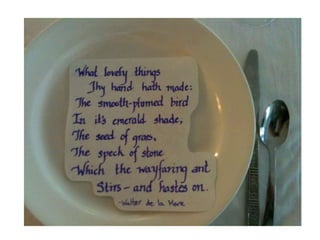 What lovely things
Thy hand hath made:
The smooth-plumed bird
In it's emerald shade,
The seed of grass,
The speck of stone
Which the wayfaring ant
Stirs - and hastes on.
-Walter de la Mare